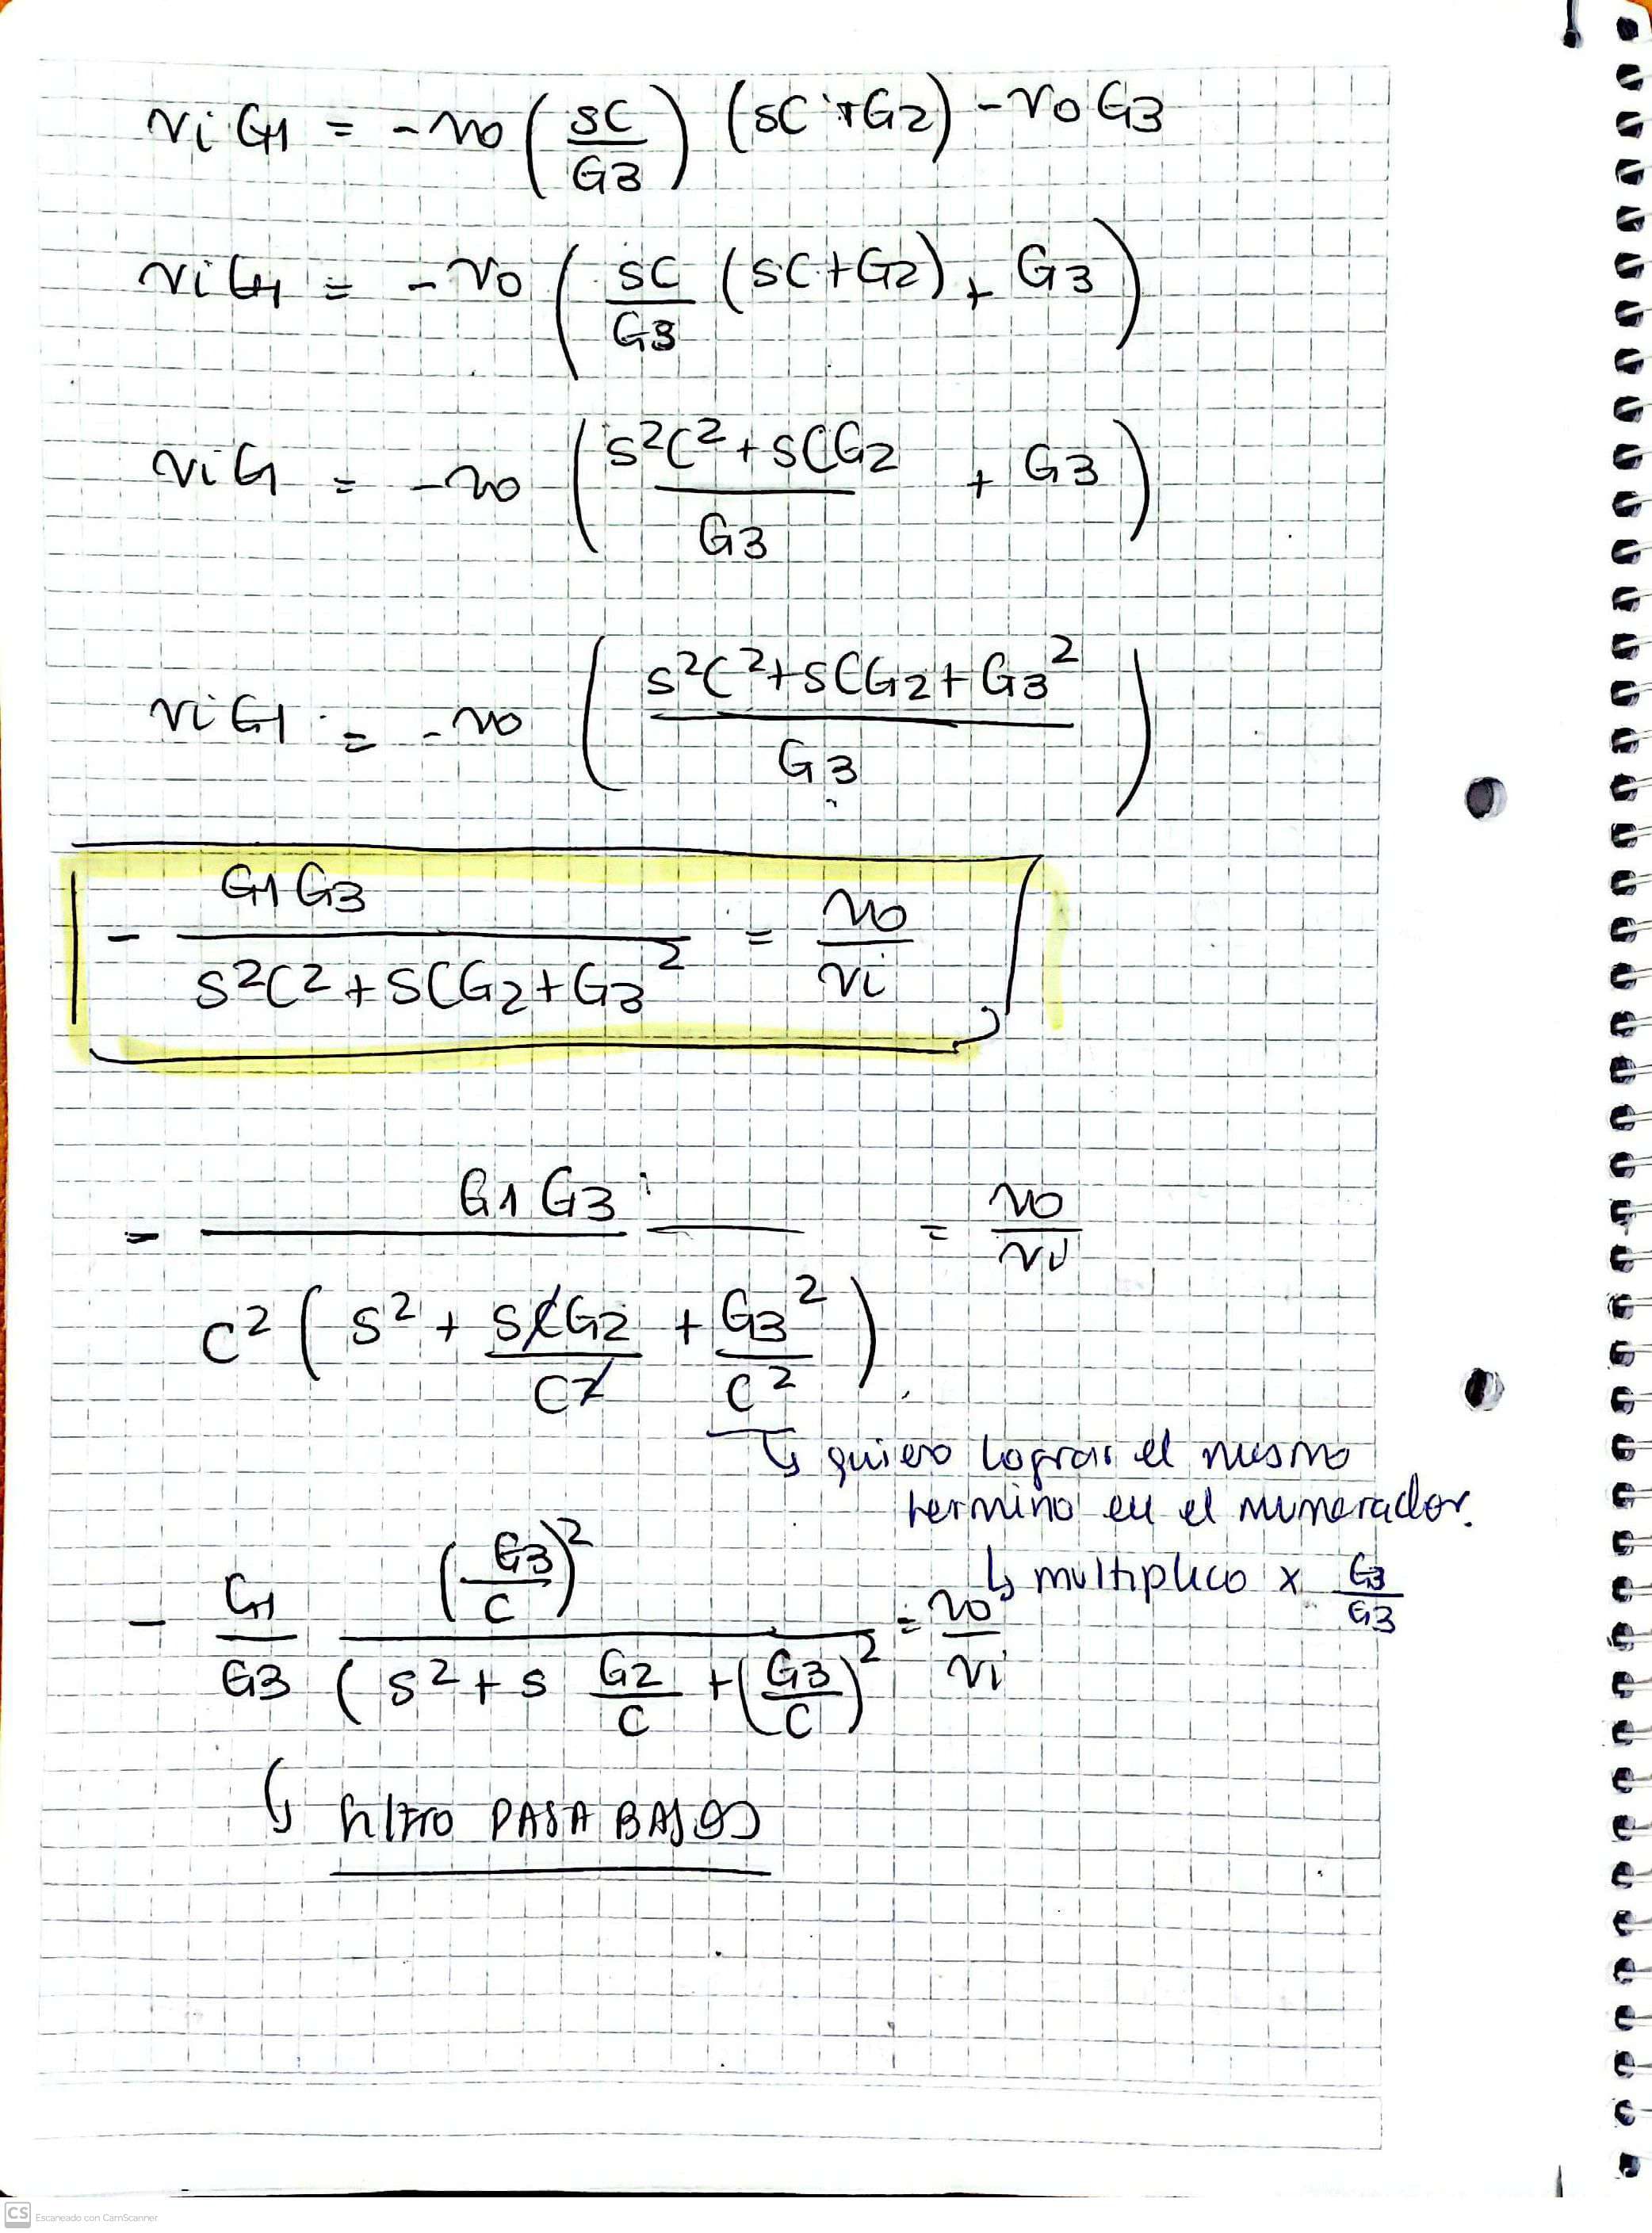 vi G1 = -vo (sC/G3) (sC + G2) - vo G3
vi G1 = -vo (sC/G3 (sC + G2) + G3)
vi G1 = -vo ((s²C² + sCG2)/G3 + G3)
vi G1 = -vo ((s²C² + sCG2 + G3²)/G3)
- G1 G3/(s²C² + sCG2 + G3²) = vo/vi
- G1 G3/(C² (s² + sCG2/C² + G3²/C²)) = vo/vi
↳ quiero lograr el mismo
termino en el numerador.
↳ multiplico x G3/G3
- G1/G3 (G3/C)²/(s² + s G2/C + (G3/C)²) = vo/vi
↳ filtro PASA BAJOS
CS Escaneado con CamScanner